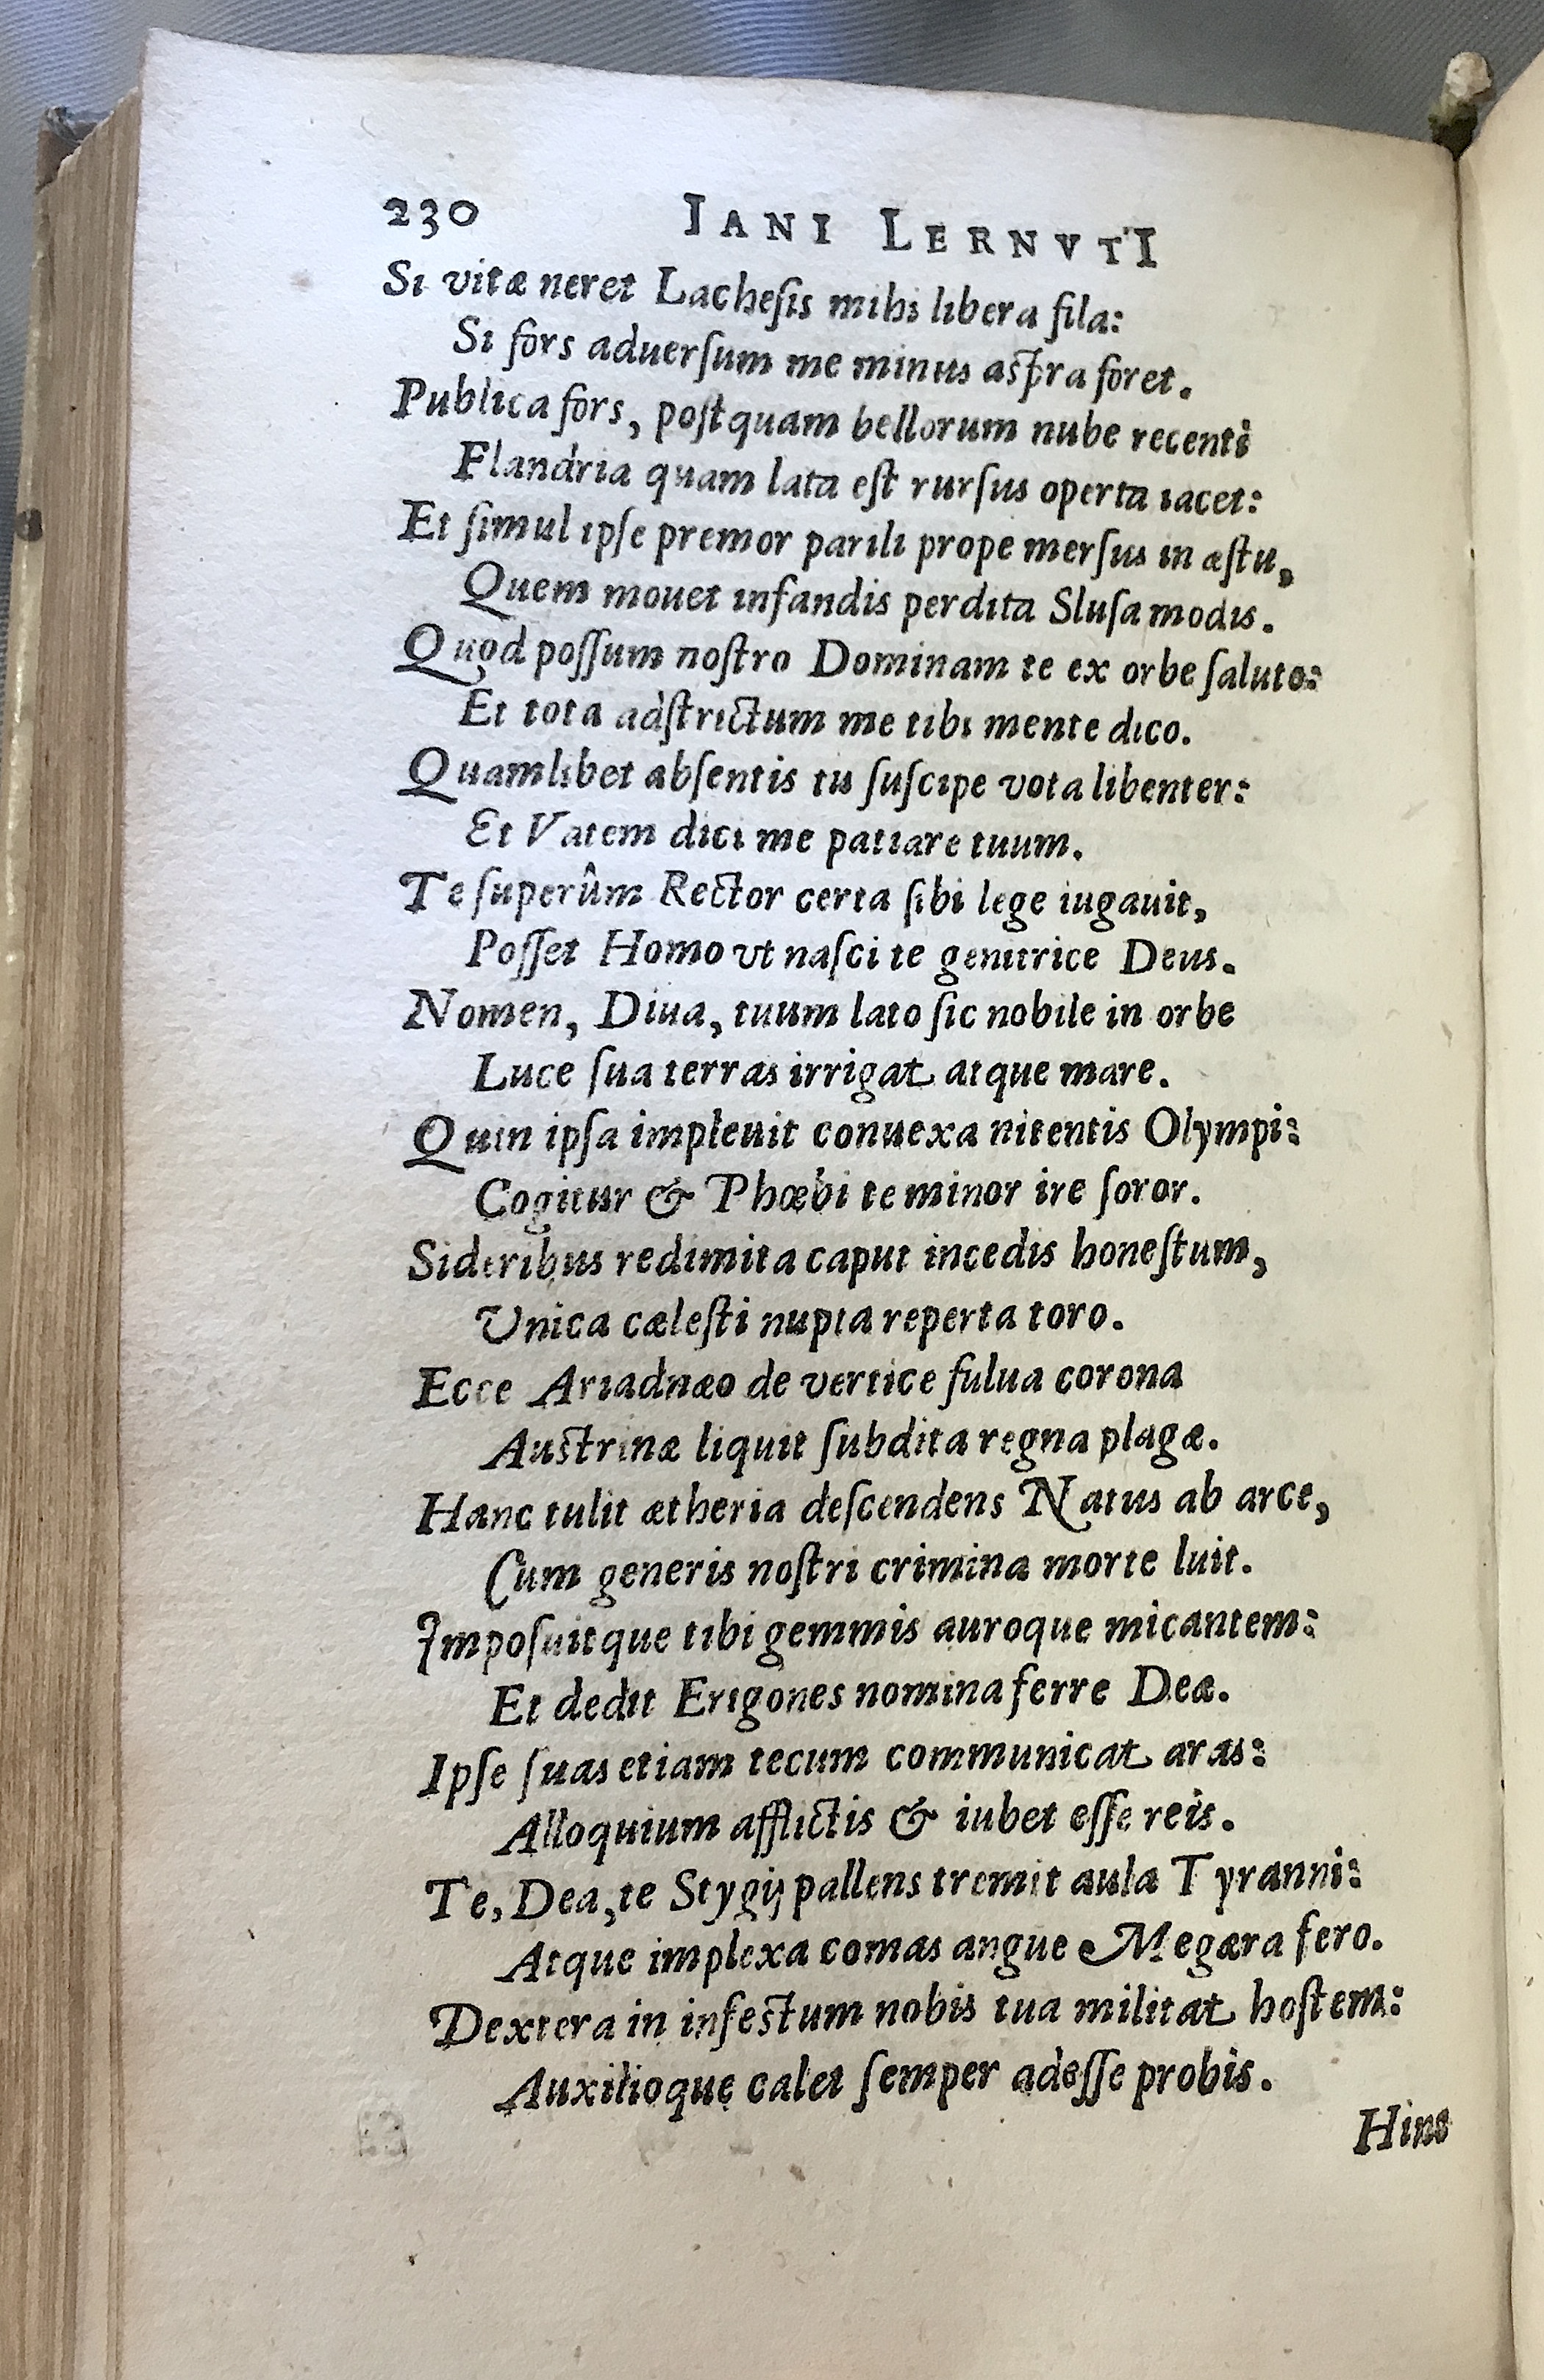 230 IANI LERNVTI
Si vitæ neret Lachesis mihi libera fila:
Si fors aduersum me minus aspra foret.
Publica fors, postquam bellorum nube recenti
Flandria quam lata est rursus operta iacet:
Et simul ipse premor parili prope mersus in æstu,
Quem mouet infandis perdita Slusa modis.
Quod possum nostro Dominam te ex orbe saluto:
Et tota adstrictum me tibi mente dico.
Quamlibet absentis tu suscipe vota libenter:
Et Vatem dici me patiare tuum.
Te superûm Rector certa sibi lege iugauit,
Posset Homo vt nasci te genitrice Deus.
Nomen, Diua, tuum lato sic nobile in orbe
Luce sua terras irrigat atque mare.
Quin ipsa impleuit conuexa nitentis Olympi:
Cogitur & Phœbi te minor ire soror.
Sideribus redimita caput incedis honestum,
Unica cælesti nupta reperta toro.
Ecce Ariadnæo de vertice fulua corona
Austrinæ liquit subdita regna plagæ.
Hanc tulit ætheria descendens Natus ab arce,
Cum generis nostri crimina morte luit.
Imposuitque tibi gemmis auroque micantem:
Et dedit Erigones nomina ferre Deæ.
Ipse suas etiam tecum communicat aras:
Alloquium afflictis & iubet esse reis.
Te, Dea, te Stygij pallens tremit aula Tyranni:
Atque implexa comas angue Megæra fero.
Dextera in infestum nobis tua militat hostem:
Auxilioque calet semper adesse probis.
Hinc